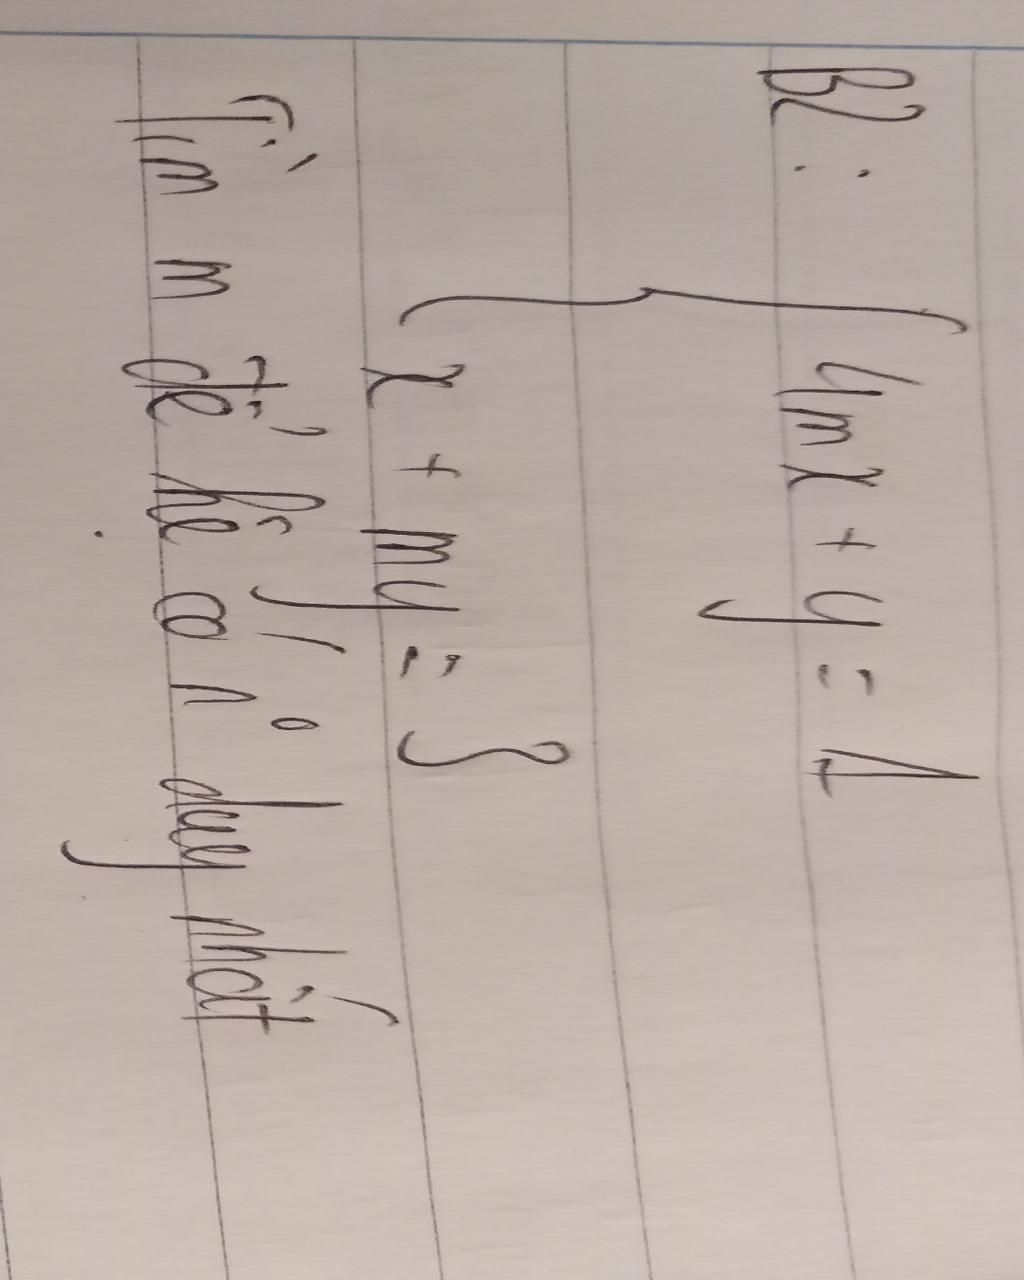 B2 : { 4mx + y = 1
x + my = 3
Tìm m để hệ có n° duy nhất